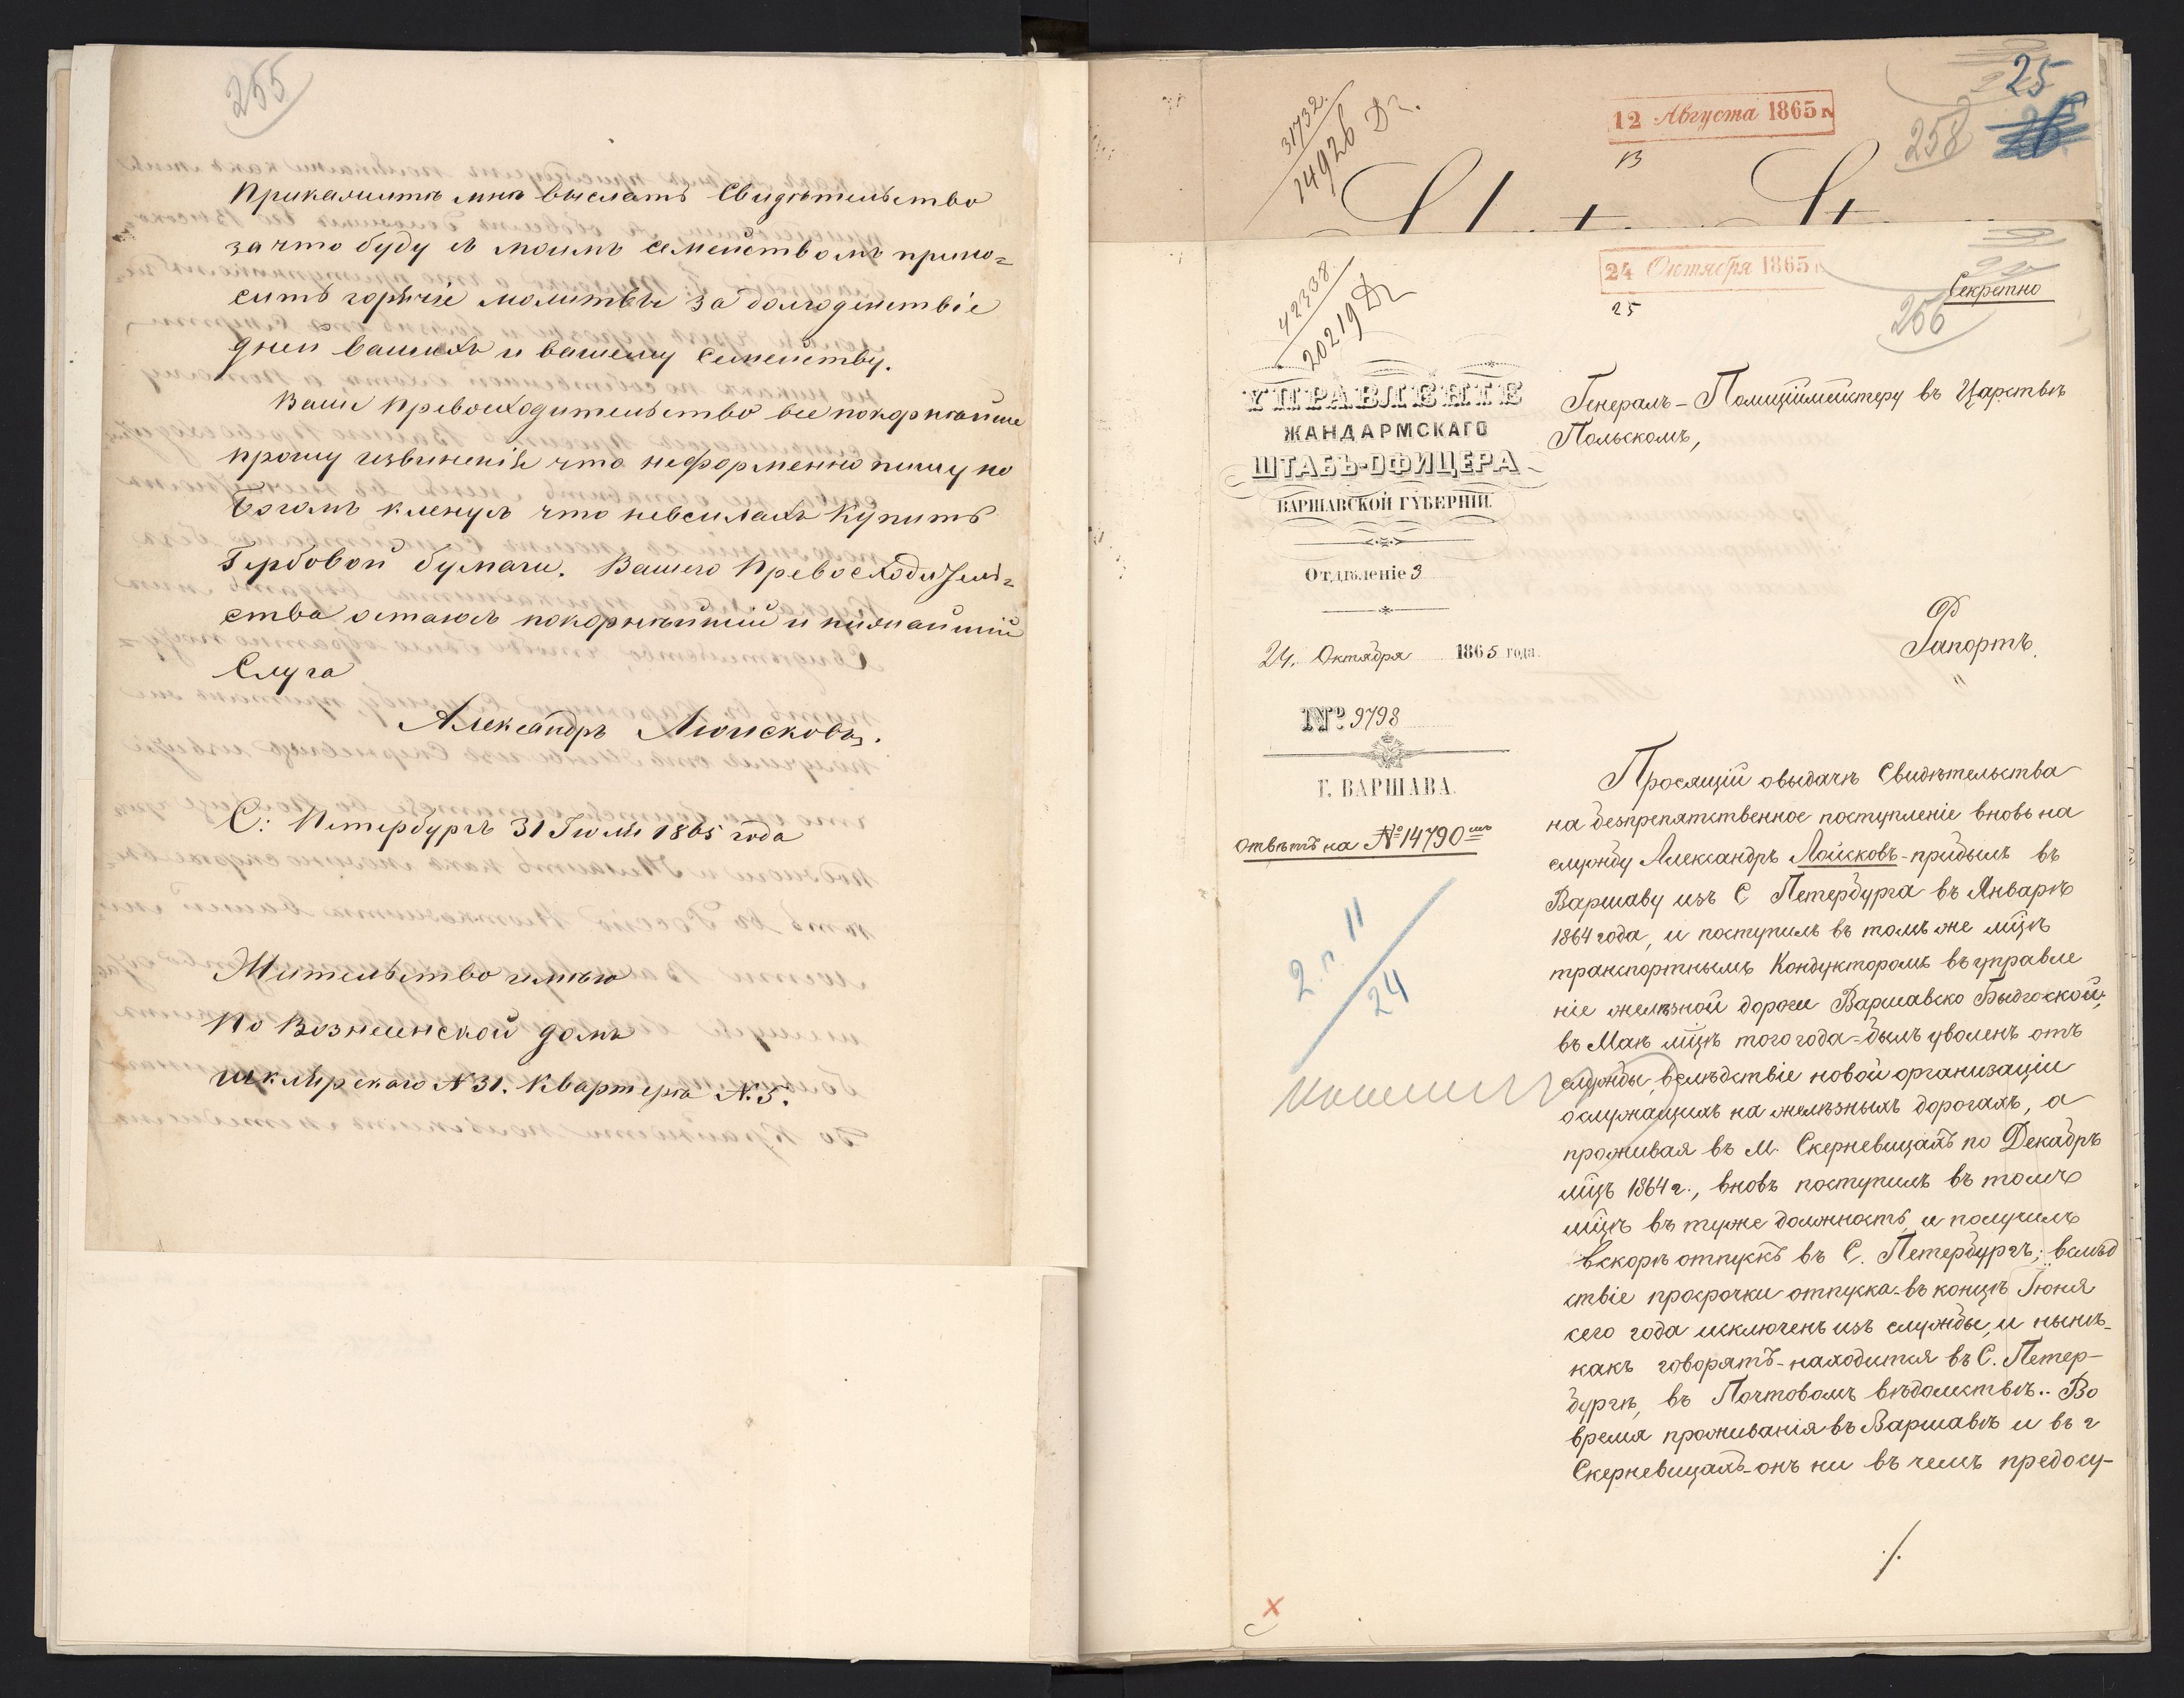 255
Прикажитѣ мнѣ выслать Свидѣтельство
за что буду съ моимъ семействомъ прино=
сить горячіе молитвы за долгоденствіе
дней вашихъ и вашему семейству.
Ваше Превосходительство все покорнѣйше
прошу извиненія что неформенно пишу но
Богомъ кленусь что невсилахъ Купить
Гербовой бумаги. Вашего Превосходитель=
ства остаюсь покорнѣйшій и нижайшій
Слуга
Александръ Люисковъ.
С: Петербургъ 31 Іюля 1865 года
Жительство имѣю
По Вознесенской домъ
Шклярскаго N 31. Квартера N. 5.
31732.
14926 Дг.
12 Августа 1865 г
13
25
26
258
24 Октября 1865 г
25
Секретно
256
42338.
20219 Дг
УПРАВЛЕНІЕ
ЖАНДАРМСКАГО
ШТАБЪ-ОФИЦЕРА
ВАРШАВСКОЙ ГУБЕРНІИ.
Отдѣленіе 3
24. Октября 1865 года.
№ 9798
Г. ВАРШАВА.
Отвѣтъ на № 14790
2. г. 11
24
Генералъ-Полиціймейстеру въ Царствѣ
Польскомъ,
Рапортъ.
Просящій о выдачѣ Свидѣтельства
на безпрепятственное поступленіе вновь на
службу Александръ Лоисковъ - прибылъ въ
Варшаву изъ С Петербурга въ Январѣ
1864 года, и поступилъ въ томъ же мцѣ
транспортнымъ Кондукторомъ въ управле
ніе желѣзной дороги Варшавско Быдгоской;
въ Маѣ мцѣ того года = былъ уволенъ отъ
службы, вслѣдствіе новой организаціи
о служащихъ на желѣзныхъ дорогахъ, а
проживая въ М. Скерневицахъ по Декабрь
мцъ 1864 г., вновь поступилъ въ томъ
мцѣ въ туже должность, и получилъ
вскорѣ отпускъ въ С. Петербургъ; вслѣд
ствіе просрочки отпуска - въ концѣ Іюня
сего года исключенъ изъ службы, и нынѣ -
какъ говорятъ - находится въ С. Петер-
бургѣ, въ Почтовомъ вѣдомствѣ.. Во
время проживанія въ Варшавѣ и въ г
Скерневицахъ - онъ ни въ чемъ предосу-
./.